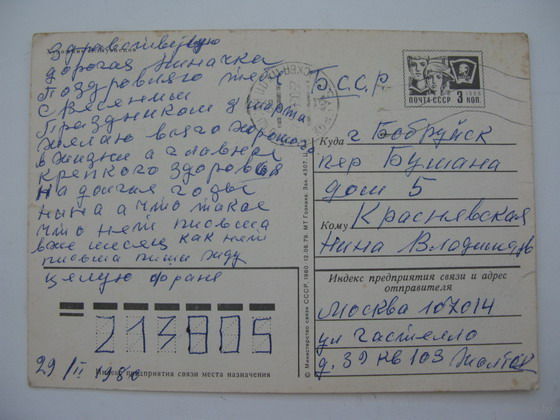 Здравствуйте
дорогая Ниначка
Поздровляю тебя
с Весенним
Праздником 8 марта
жилаю всего хорошого
в жизни а главное
крепкого здоровья
на долгия годы
нина а что такое
что нет писма
вже месяц как нет
писма пиши жду
целую Франя
213805
29/II 1980
Индекс предприятия связи места назначения
© Министерство связи СССР, 1980 12.06.79. МТ Гознака. Зак. 4307. Ц
ПОЧТА СССР 3 КОП.
БССР
Куда г Бобруйск
пер Бумана
дом 5
Кому Краснявская
Нина Владимиров
Индекс предприятия связи и адрес
отправителя
Москва 107014
ул Гастелло
д. 39 кв 103